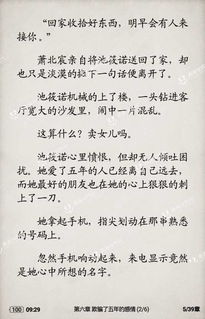 “回家收拾好东西，明早会有人来
接你。”
萧北宸亲自将池筱诺送回了家，却
也只是淡漠的抛下一句话便离开了。
池筱诺机械的上了楼，一头钻进客
厅宽大的沙发里，脑中一片混乱。
这算什么？卖女儿吗。
池筱诺心里愤恨，但却无人倾吐困
扰。她爱了五年的人已经离自己远去，
而她最好的朋友也在她的心上狠狠的刺
上了一刀。
她拿起手机，指尖划动在那串熟悉
的号码上。
忽然手机响动起来，来电显示竟然
是她心中所想的名字。
100 09:29 第六章 欺骗了五年的感情 (2/6) 5/39章